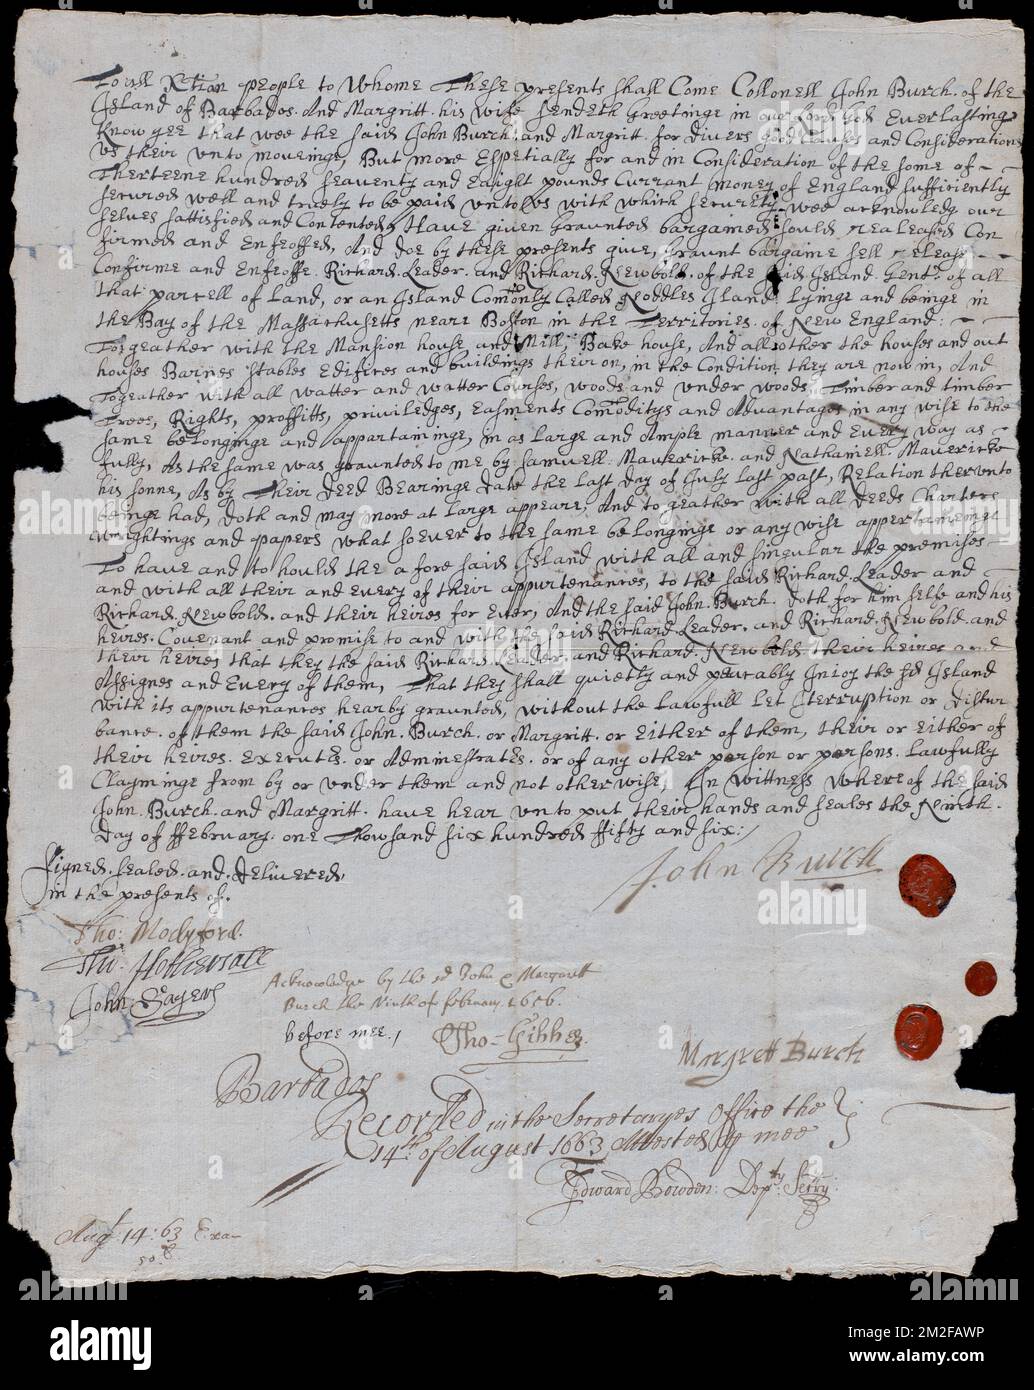 To all Xtian people to Whome These presents shall Come Collonell John Burch. of the
Island of Barbados. And Margritt. his wife sendeth Greetinge in our Lord God Everlasting
Know yee that wee the said John Burch and Margritt. for Divers good Causes and Considerations
us their unto moveinge, But more Espetially for and in Consideration of the some of
Therteene hundred seaventy and Eaight pounds Currant money of England sufficiently
secured well and truely to be paid unto us with which security wee acknowledg our
selves sattisfied and Contented, Have given Graunted bargained sould realeased Con
firmed and Enfeoffed, And Doe by these presents give, graunt bargaine sell release
Confirme and Enfeoffe. Richard. Leader. and Richard. Newbold. of the said Island. Gentn. of all
that parcell of Land, or an Island Comonly Called Noddles Island Lyinge and beinge in
the Bay of the Massachusetts neare Boston in the Territories. of New England:
Togeather with the Mansion house and Mill, Bake house, And all other the houses and out
houses Barnes Stables Edifices and buildings their on, in the Condition they are now in, And
Togeather with all watter and watter Courses, woods and under woods, Timber and timber
Trees, Rights, proffitts, priviledges, Easments Comoditys and Advantages in any wise to the
same belonginge and appartaininge, in as large and Ample manner and Every way as
fully, As the same was graunted to me by Samuell. Mavericke. and Nathaniell. Mavericke
his sonne, As by Their Deed Bearinge Date the last day of July last past, Relation therunto
beinge had, Doth and may more at Large appeare, And togeather with all Deeds Charters
wrightings and papers what soever to the same belonginge or any wise appertaineinge
To have and to hould the afore said Island with all and singular the premises
and with all their and Every of their appurtenances, to the said Richard. Leader and
Richard. Newbold. and their heires for Ever, And the said John. Burch. Doth for him selfe and his
heires. Covenant and promise to and with the said Richard. Leader. and Richard. Newbold. and
their heires that they the said Richard. Leader, and Richard. Newbold their heires and
Assignes and Every of them, That they shall quietly and peacably Injoy the sd Island
with its appurtenances hearby graunted, without the Lawfull Let Iterruption or Distur
bance. of them the said John. Burch. or Margritt. or Either of them, their or Either of
their heires. Executrs. or Administrats. or of any other person or persons. Lawfully
Clayminge from by or under them and not otherwise, In Wittness whereof the said
John. Burch. and Margritt. have hear unto put their hands and seales the Ninth.
Day of ffebruary. one Thowsand six hundred ffifty and six:
Signed. sealed. and. Delivered,
in the presents of.
John Burch
Tho: Modyford.
Tho: Hothersall
John: Sayers
Acknowledge by the sd John & Margrett
Burch the Ninth of february. 1656.
before mee,
Tho- Gibbes
Margrett Burch
Barbados
Recorded in the Secretaryes Office the
14th of August 1663 Attested p mee
Edward Bowden: Depty Secry:
Augt 14: 63 Exa
alamy
Image ID: 2M2FAWP
www.alamy.com